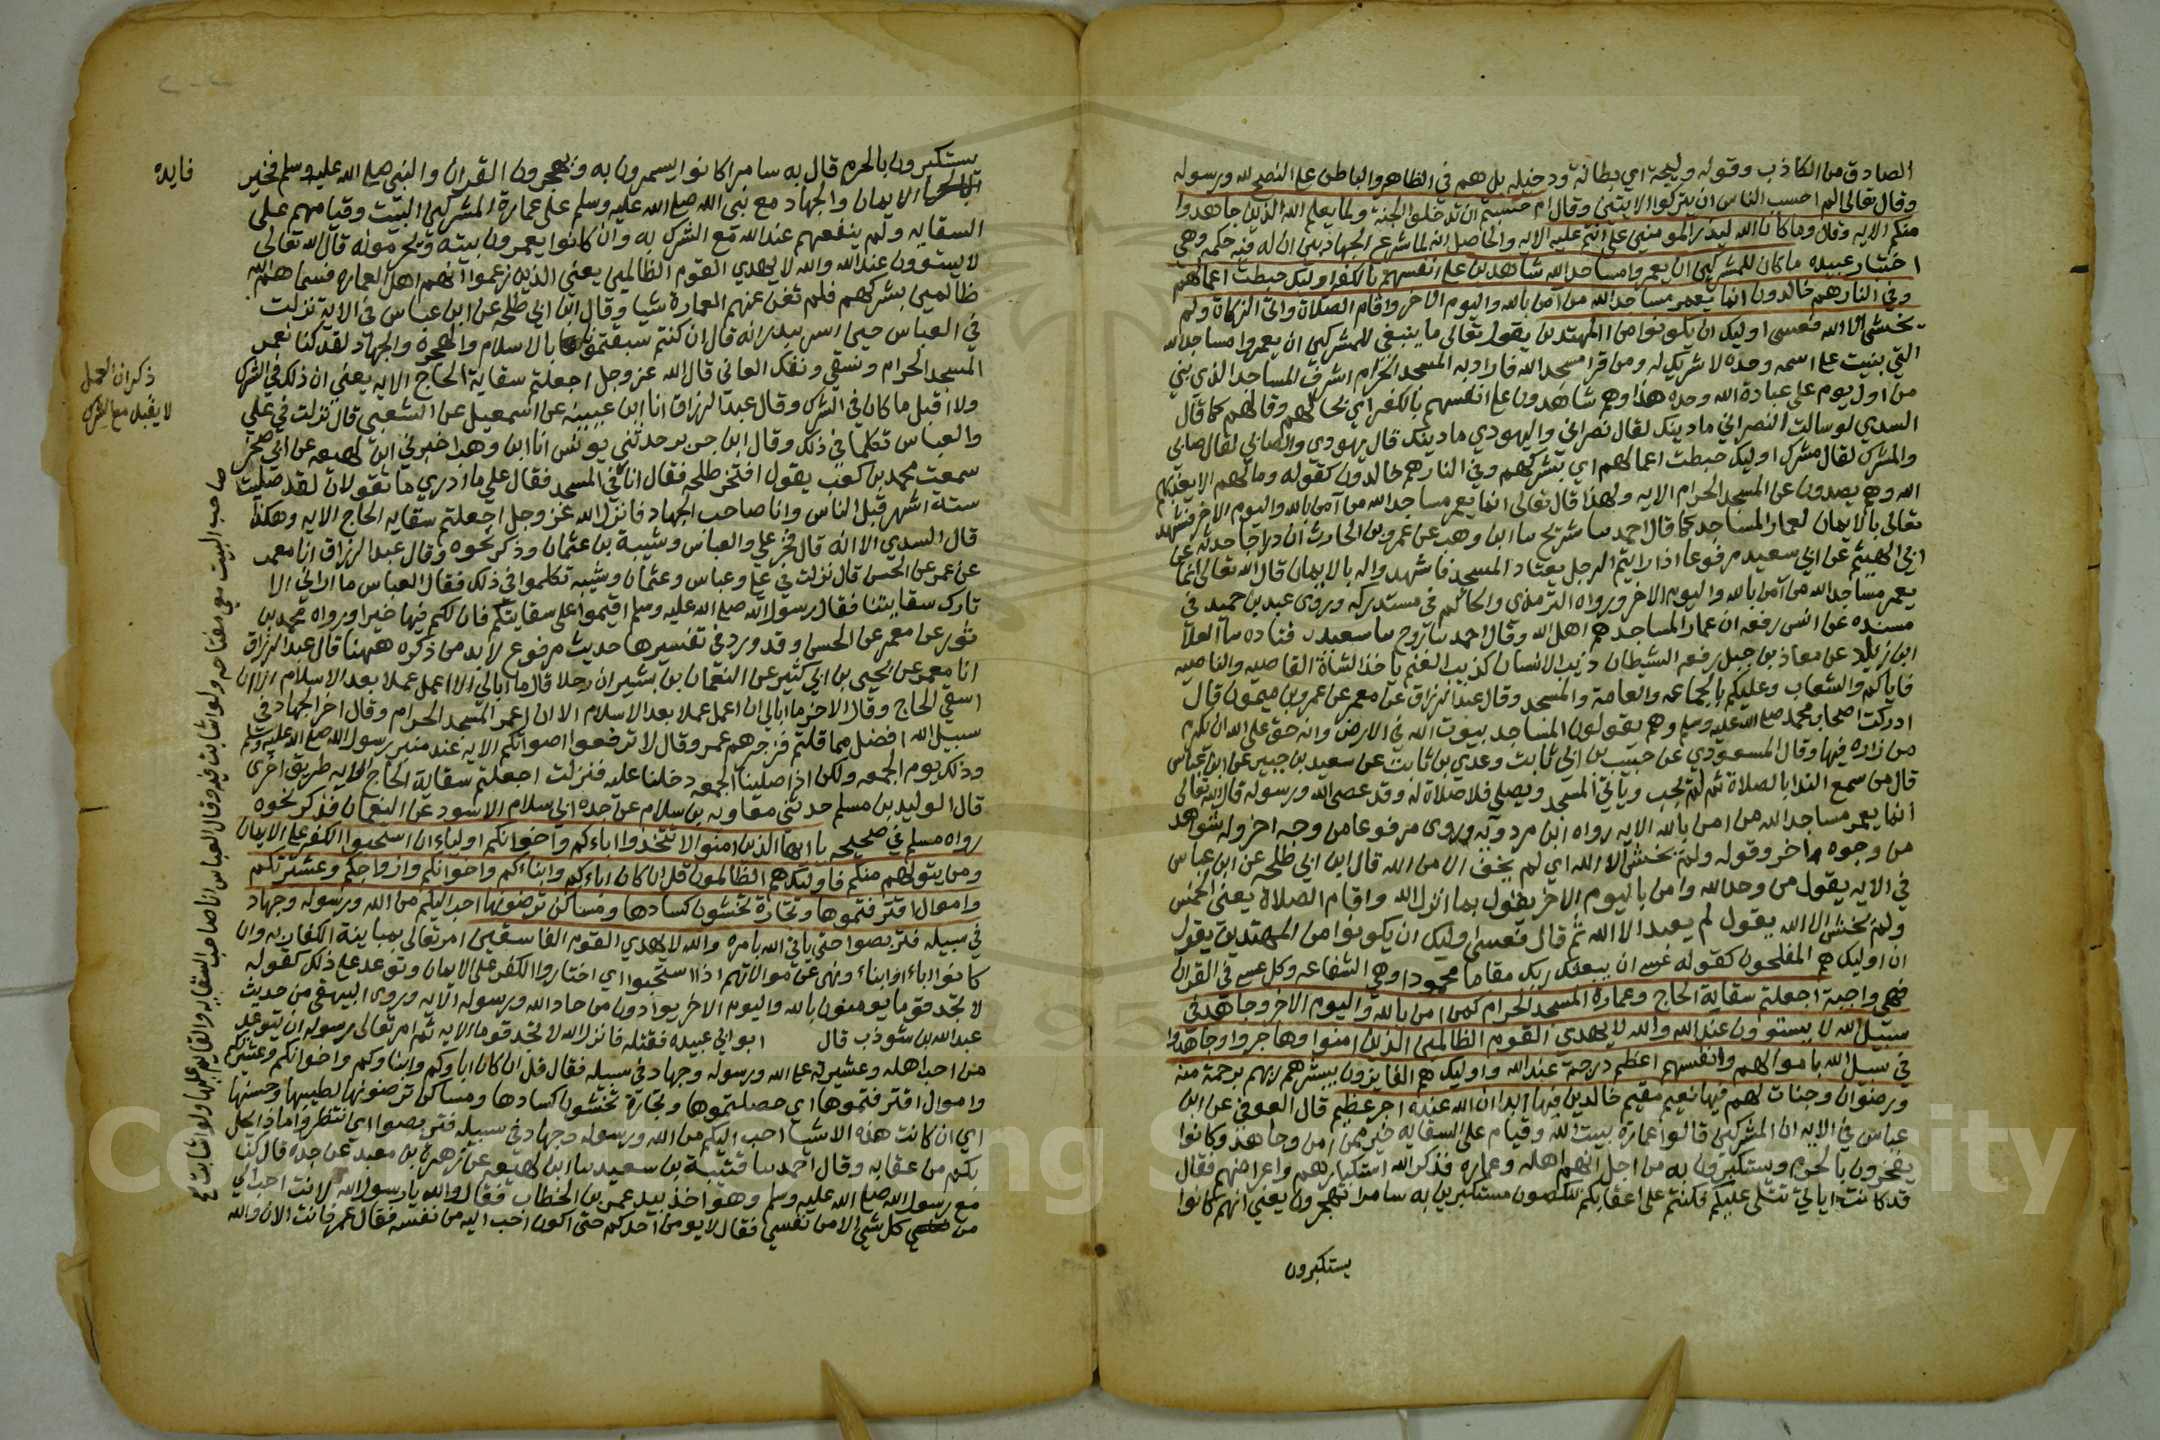 الصادق من الكاذب وقوله وليجة اي بطانة ودخيله بل هم في الظاهر والباطن على النصح لله ورسوله
وقال تعالى الم احسب الناس ان يتركوا الا يتين وقال ام حسبتم ان تدخلوا الجنة ولما يعلم الله الذين جاهدوا
منكم الايه وقال وما كان الله ليذر المومنين على ما انتم عليه الايه والحاصل انه لما شرع الجهاد بين ان له فيه حكمه وهي
اختبار عبيده ما كان للمشركين ان يعمروا مساجد الله شاهدين على انفسهم بالكفر اوليك حبطت اعمالهم
وفي النار هم خالدون انما يعمر مساجد الله من آمن بالله واليوم الاخر واقام الصلاة واتى الزكاة ولم
يخشى الا الله فعسى اوليك ان يكونوا من المهتدين يقول تعالى ما ينبغي للمشركين ان يعمروا مساجد الله
التي بنيت على اسمه وحده لا شريك له ومن قرا مسجد الله فاراد به المسجد الحرام اشرف المساجد الذي بني
من اول يوم على عبادة الله وحده هذا وهم شاهدون على انفسهم بالكفر اي بحالهم وقالهم كما قال
السدي لو سالت النصراني ما دينك لقال نصراني واليهودي ما دينك قال يهودي والصابي لقال صابي
والمشرك لقال مشرك اوليك حبطت اعمالهم اي بشركهم وفي النار هم خالدون كقوله وما لهم الا يعذبهم
الله وهم يصدون عن المسجد الحرام الايه ولهذا قال تعالى انما يعمر مساجد الله من آمن بالله واليوم الاخر فشهد
تعالى بالايمان لعمار المساجد كما قال احمد سا شريح سا ابن وهب عن عمرو بن الحارث ان دراجا حدثه عن
ابي الهيثم عن ابي سعيد مرفوعا اذا رايتم الرجل يعتاد المسجد فاشهدوا له بالايمان قال الله تعالى انما
يعمر مساجد الله من آمن بالله واليوم الاخر ورواه الترمذي والحاكم في مستدركه وروى عبد بن حميد في
مسنده عن انس رفعه ان عمار المساجد هم اهل الله وقال احمد سا روح سا سعيد عن قتاده سا العلا
ابن زياد عن معاذ بن جبل رفعه الشيطان ذيب الانسان كذيب الغنم ياخذ الشاة القاصيه والناصيه
فاياكم والشعاب وعليكم بالجماعه والعامة والمسجد وقال عبد الرزاق عن معمر عن عمرو بن ميمون قال
ادركت اصحاب محمد صلى الله عليه وسلم وهم يقولون المساجد بيوت الله في الارض وانه حق على الله ان يكرم
من زاره فيها وقال المسعودي عن حبيب بن ابي ثابت وعدي بن ثابت عن سعيد بن جبير عن ابن عباس
قال من سمع الندا بالصلاة ثم لم يجب وياتي المسجد ويصلي فلا صلاة له وقد عصى الله ورسوله قال الله تعالى
انما يعمر مساجد الله من امن بالله الايه رواه ابن مردويه وروى مرفوعا من وجه اخر وله شواهد
من وجوه اخر وقوله ولم يخش الا الله اي لم يخف الا من الله قال ابن ابي طلحه عن ابن عباس
في الايه يقول من وحد الله وامن باليوم الاخر يقول بما انزل الله واقام الصلاة يعني الخمس
ولم يخش الا الله يقول لم يعبد الا الله ثم قال فعسى اوليك ان يكونوا من المهتدين يقول
ان اوليك هم المفلحون كقوله عسى ان يبعثك ربك مقاما محمودا وهي الشفاعه وكل عسى في القران
فهي واجبة اجعلتم سقاية الحاج وعمارة المسجد الحرام كمن امن بالله واليوم الاخر وجاهد في
سبيل الله لا يستوون عند الله والله لا يهدي القوم الظالمين الذين امنوا وهاجروا وجاهدوا
في سبيل الله باموالهم وانفسهم اعظم درجة عند الله واوليك هم الفايزون يبشرهم ربهم برحمة منه
ورضوان وجنات لهم فيها نعيم مقيم خالدين فيها ابدا ان الله عنده اجر عظيم قال العوفي عن ابن
عباس في الايه ان المشركين قالوا عمارة بيت الله وقيام على السقايه خير ممن آمن وجاهد وكانوا
يفخرون بالحرم ويستكبرون به من اجل انهم اهله وعماره فذكر الله استكبارهم واعراضهم فقال
قد كانت اياتي تتلى عليكم فكنتم على اعقابكم تنكصون مستكبرين به سامرا تهجرون يعني انهم كانوا
يستكبرون
يستكبرون بالحرم قال به سامرا كانوا يسمرون به ويهجرون القران والنبي صلى الله عليه وسلم فخير
الايمان والجهاد مع نبي الله صلى الله عليه وسلم على عمارة المشركين البيت وقيامهم على
السقايه ولم ينفعهم عند الله مع الشرك به وان كانوا يعمرون بيته ويحرمونه قال الله تعالى
لا يستوون عند الله والله لا يهدي القوم الظالمين يعني الذين زعموا انهم اهل العماره فسماهم الله
ظالمين بشركهم فلم تغن عنهم العمارة شيا وقال ابن ابي طلحه عن ابن عباس في الايه نزلت
في العباس حين اسر ببدر انه قال ان كنتم سبقتمونا بالاسلام والهجرة والجهاد لقد كنا نعمر
المسجد الحرام ونسقي ونفك العاني قال الله عز وجل اجعلتم سقاية الحاج الايه يعني ان ذلك في الشرك
ولا اقبل ما كان في الشرك وقال عبد الرزاق انا ابن عيينه عن اسمعيل عن الشعبي قال نزلت في علي
والعباس تكلما في ذلك وقال ابن جرير حدثني يونس انا ابن وهب اخبرني ابن لهيعه عن ابي صخر
سمعت محمد بن كعب يقول افتخر طلحه فقال انا في المسجد فقال علي ما ادري ما تقولان لقد صليت
ستة اشهر قبل الناس وانا صاحب الجهاد فانزل الله عز وجل اجعلتم سقايه الحاج الايه وهكذا
قال السدي الا انه قال فخر علي والعباس وشيبة بن عثمان وذكر نحوه وقال عبد الرزاق انا معمر
عن عمر عن الحسن قال نزلت في علي وعباس وعثمان وشيبه تكلموا في ذلك فقال العباس ما اراني الا
تارك سقايتنا فقال رسول الله صلى الله عليه وسلم اقيموا على سقايتكم فان لكم فيها خيرا ورواه محمد بن
ثور عن معمر عن الحسن وقد ورد في تفسيرها حديث مرفوع لا بد من ذكره ههنا قال عبد الرزاق
انا معمر عن يحيى بن ابي كثير عن النعمان بن بشير ان رجلا قال ما ابالي الا اعمل عملا بعد الاسلام الا ان
اسقي الحاج وقال الاخر ما ابالي ان اعمل عملا بعد الاسلام الا ان اعمر المسجد الحرام وقال اخر الجهاد في
سبيل الله افضل مما قلتم فزجرهم عمر وقال لا ترفعوا اصواتكم الايه عند منبر رسول الله صلى الله عليه وسلم
وذلك يوم الجمعه ولكن اذا صلينا الجمعه دخلنا عليه فنزلت اجعلتم سقاية الحاج الايه طريق اخرى
قال الوليد بن مسلم حدثني معاويه بن سلام عن جده ابي سلام الاسود عن النعمان فذكر نحوه
رواه مسلم في صحيحه يا ايها الذين امنوا لا تتخذوا اباءكم واخوانكم اولياء ان استحبوا الكفر على الايمان
ومن يتولهم منكم فاوليك هم الظالمون قل ان كان اباءكم وابناءكم واخوانكم وازواجكم وعشيرتكم
واموال اقترفتموها وتجارة تخشون كسادها ومساكن ترضونها احب اليكم من الله ورسوله وجهاد
في سبيله فتربصوا حتى ياتي الله بامره والله لا يهدي القوم الفاسقين امر تعالى بمباينة الكفار به وان
كانوا اباء او ابناء ونهى عن موالاتهم اذا استحبوا اي اختاروا الكفر على الايمان وتوعد على ذلك كقوله
لا تجد قوما يومنون بالله واليوم الاخر يوادون من حاد الله ورسوله الايه وروى البيهقي من حديث
عبد الله بن شوذب قال ابو ابي عبيده فقتله فانزل الله لا تجد قوما الايه ثم امر تعالى رسوله ان يتوعد
من احب اهله وعشيرته على الله ورسوله وجهاد في سبيله فقال قل ان كان اباوكم وابناوكم واخوانكم وعشيرتكم
واموال اقترفتموها اي حصلتموها وتجارة تخشون كسادها ومساكن ترضونها لطيبها وحسنها
اي ان كانت هذه الاشيا احب اليكم من الله ورسوله وجهاد في سبيله فتربصوا اي انتظروا ماذا يحل
بكم من عقابه وقال احمد سا قتيبة بن سعيد سا ابن لهيعه عن زهرة بن معبد عن جده قال كنا
مع رسول الله صلى الله عليه وسلم وهو اخذ بيد عمر بن الخطاب فقال والله يا رسول الله لانت احب الي
من كل شي الا من نفسي فقال لا يومن احدكم حتى اكون احب اليه من نفسه فقال عمر فانت الان والله
فايده
ذكر ان العمل
لا يقبل مع الشرك
صاحب البيت معي مفتاحه ولو اشا بت فيه وقال العباس انا صاحب السقايه والقايم عليها ولو اشا بت